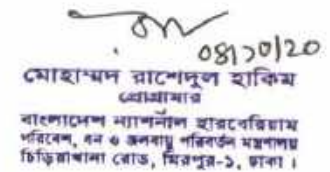 08/10/20
মোহাম্মদ রাশেদুল হাকিম
প্রোগ্রামার
বাংলাদেশ ন্যাশনাল হারবেরিয়াম
পরিবেশ, বন ও জলবায়ু পরিবর্তন মন্ত্রণালয়
চিড়িয়াখানা রোড, মিরপুর-১, ঢাকা ।